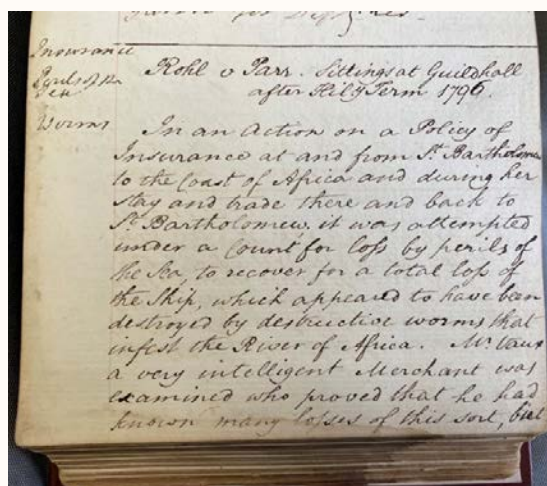 Insurance
Perils of the
Sea
Worms
Rohl v Parr. Sittings at Guildhall
after Hily Term 1796.
In an Action on a Policy of
Insurance at and from St. Bartholomew
to the Coast of Africa and during her
stay and trade there and back to
St. Bartholomew, it was attempted
under a Count for loss by perils of
the Sea, to recover for a total loss of
the Ship, which appeared to have been
destroyed by destructive worms that
infest the River of Africa. Mr.
a very intelligent Merchant was
examined who proved that he had
known many losses of this sort, but